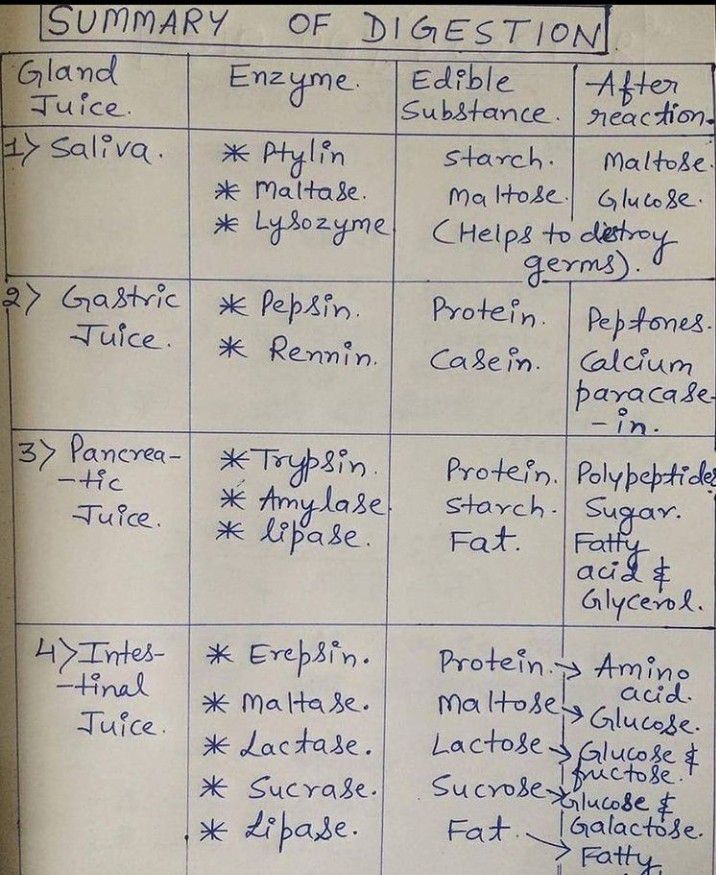 SUMMARY OF DIGESTION
Gland Juice. | Enzyme. | Edible Substance. | After reaction.
1> Saliva. | * Ptylin | starch. | Maltose.
* Maltase. | Maltose. | Glucose.
* Lysozyme | (Helps to destroy germs).
2> Gastric Juice. | * Pepsin. | Protein. | Peptones.
* Rennin. | Casein. | Calcium paracase-
-in.
3> Pancrea-
-tic Juice. | * Trypsin. | Protein. | Polypeptides
* Amylase | Starch. | Sugar.
* lipase. | Fat. | Fatty acid & Glycerol.
4> Intes-
-tinal Juice. | * Erepsin. | Protein. → Amino acid.
* Maltase. | Maltose → Glucose.
* Lactase. | Lactose → Glucose & fructose.
* Sucrase. | Sucrose → Glucose & Galactose.
* Lipase. | Fat. → Fatty